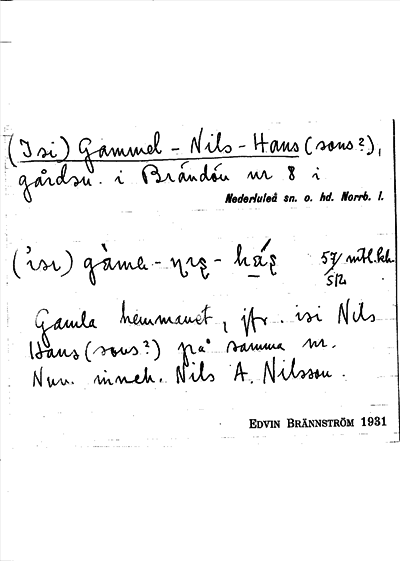 (I si) Gammel - Nils - Hans (sons?),
gårdsn. i Brändön nr 8 i
Nederluleå sn. o. hd. Norrb. l.
(ˈɪsɪ) gàmel - nɪʂ - 57/
5/2
Gamla hemmanet, jfr. isi Nils
Hans (sons?) på samma nr.
Nuv. inneh. Nils A. Nilsson.
EDVIN BRÄNNSTRÖM 1931